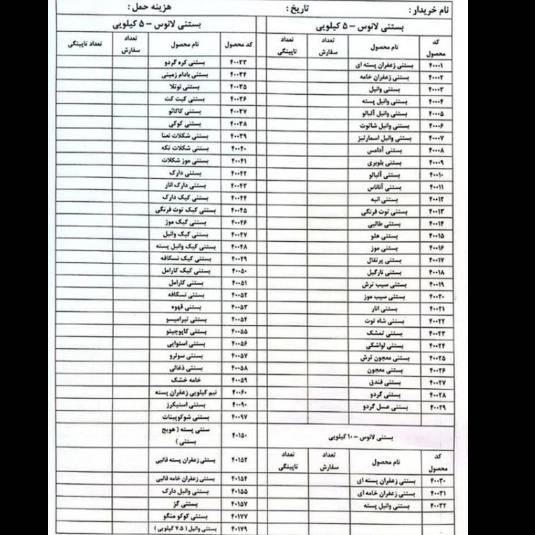 نام خریدار :
تاریخ :
هزینه حمل :
بستنی لانوس - ۵ کیلویی
کد محصول | نام محصول | تعداد سفارش | تعداد تاییدنگی
۴۰۰۰۱ بستنی زعفران پسته ای
۴۰۰۰۲ بستنی زعفران خامه
۴۰۰۰۳ بستنی وانیل
۴۰۰۰۴ بستنی وانیل پسته
۴۰۰۰۵ بستنی وانیل آلبالو
۴۰۰۰۶ بستنی وانیل شاتوت
۴۰۰۰۷ بستنی وانیل اسمارتیز
۴۰۰۰۸ بستنی آدامس
۴۰۰۰۹ بستنی بلوبری
۴۰۰۱۰ بستنی آلبالو
۴۰۰۱۱ بستنی آناناس
۴۰۰۱۲ بستنی انبه
۴۰۰۱۳ بستنی توت فرنگی
۴۰۰۱۴ بستنی طالبی
۴۰۰۱۵ بستنی هلو
۴۰۰۱۶ بستنی موز
۴۰۰۱۷ بستنی پرتقال
۴۰۰۱۸ بستنی نارگیل
۴۰۰۱۹ بستنی سیب ترش
۴۰۰۲۰ بستنی سیب موز
۴۰۰۲۱ بستنی انار
۴۰۰۲۲ بستنی شاه توت
۴۰۰۲۳ بستنی تمشک
۴۰۰۲۴ بستنی لواشکی
۴۰۰۲۵ بستنی معجون ترش
۴۰۰۲۶ بستنی معجون
۴۰۰۲۷ بستنی فندق
۴۰۰۲۸ بستنی گردو
۴۰۰۲۹ بستنی عسل گردو
بستنی لانوس - ۱۰ کیلویی
کد محصول | نام محصول | تعداد سفارش | تعداد
۴۰۰۳۰ بستنی زعفران پسته ای
۴۰۰۳۱ بستنی زعفران خامه ای
۴۰۰۳۲ بستنی وانیل پسته
بستنی لانوس - ۵ کیلویی
کد محصول | نام محصول | تعداد سفارش | تعداد
۴۰۰۳۳ بستنی کره گردو
۴۰۰۳۴ بستنی بادام زمینی
۴۰۰۳۵ بستنی نوتلا
۴۰۰۳۶ بستنی کیت کت
۴۰۰۳۷ بستنی کاکائو
۴۰۰۳۸ بستنی کوکی
۴۰۰۳۹ بستنی شکلات نعنا
۴۰۰۴۰ بستنی شکلات تکه
۴۰۰۴۱ بستنی موز شکلات
۴۰۰۴۲ بستنی دارک
۴۰۰۴۳ بستنی دارک انار
۴۰۰۴۴ بستنی کیک دارک
۴۰۰۴۵ بستنی کیک توت فرنگی
۴۰۰۴۶ بستنی کیک موز
۴۰۰۴۷ بستنی کیک وانیل
۴۰۰۴۸ بستنی کیک وانیل پسته
۴۰۰۴۹ بستنی کیک نسکافه
۴۰۰۵۰ بستنی کیک کارامل
۴۰۰۵۱ بستنی کارامل
۴۰۰۵۲ بستنی نسکافه
۴۰۰۵۳ بستنی قهوه
۴۰۰۵۴ بستنی تیرامیسو
۴۰۰۵۵ بستنی کاپوچینو
۴۰۰۵۶ بستنی استوایی
۴۰۰۵۷ بستنی سولرو
۴۰۰۵۸ بستنی ذغالی
۴۰۰۵۹ خامه خشک
۴۰۰۶۰ نیم کیلویی زعفران پسته
۴۰۰۹۰ بستنی اسنیکرز
۴۰۰۹۷ بستنی شوکوبیتات
۴۰۱۵۰ سنتی پسته ( هویج بستنی )
۴۰۱۵۲ بستنی زعفران پسته قالبی
۴۰۱۵۴ بستنی زعفران خامه قالبی
۴۰۱۵۵ بستنی وانیل دارک
۴۰۱۵۷ بستنی گز
۴۰۱۷۷ بستنی کوکو منگو
۴۰۱۷۹ بستنی وانیل ( ۷.۵ کیلویی )